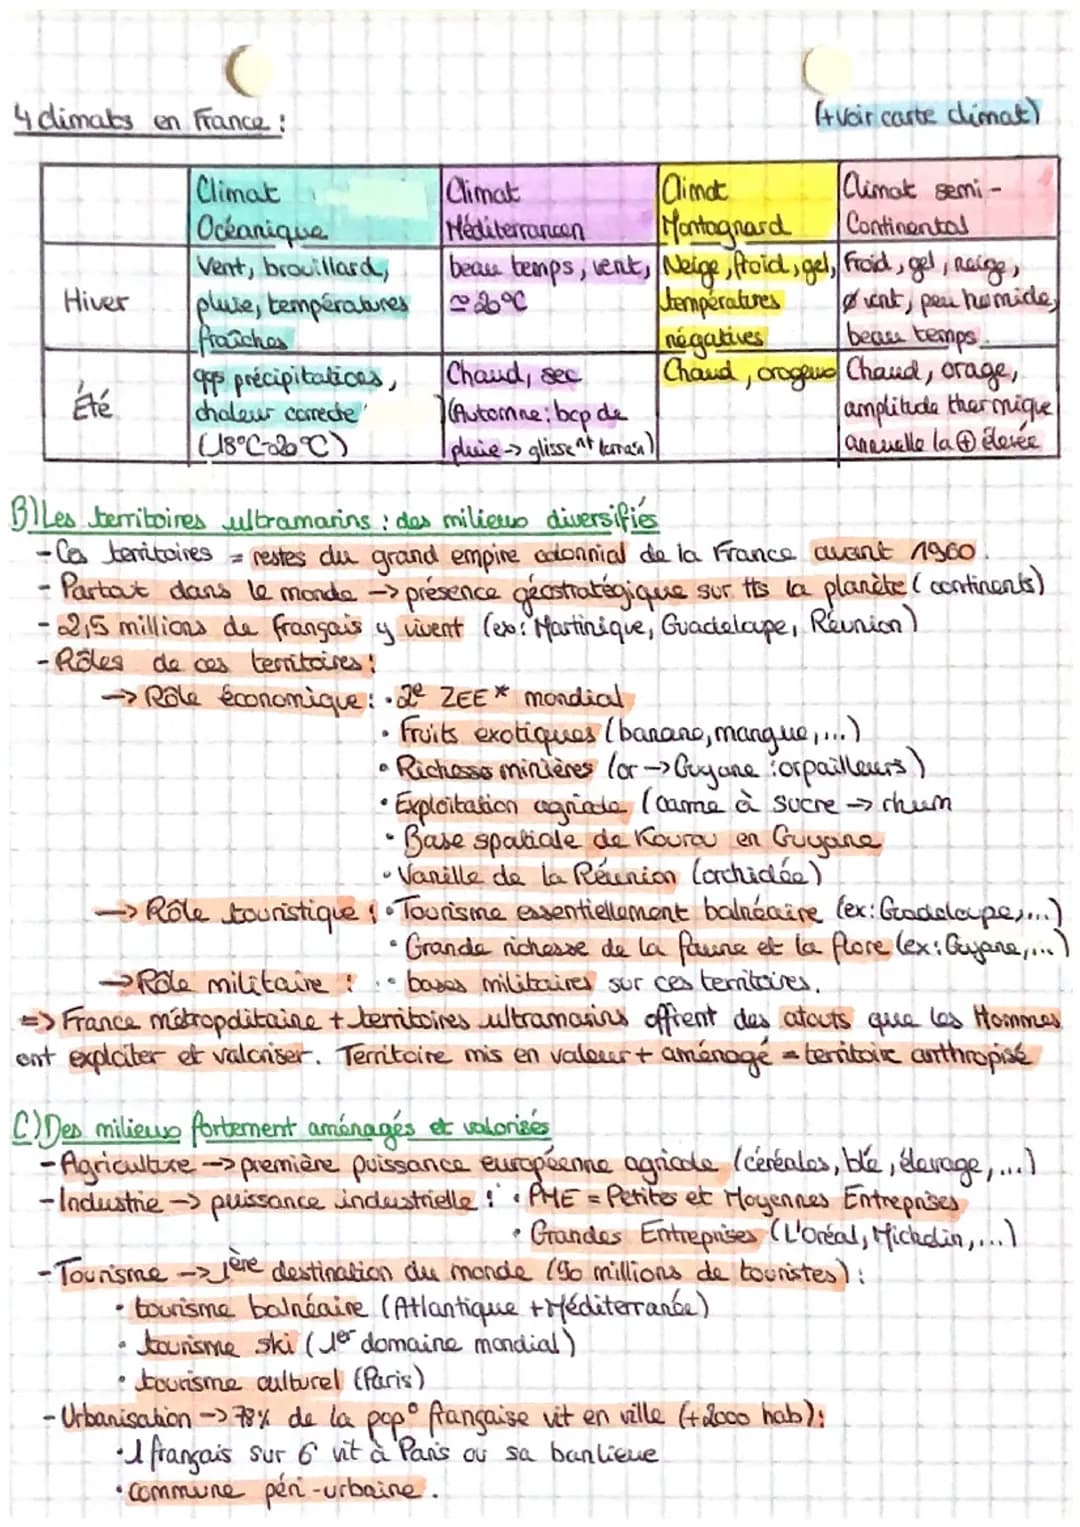 4 climats en France : (+Voir carte climat)
Climat Océanique
Climat Méditerranéen
Climat Montagnard
Climat semi-Continental
Hiver
Vent, brouillard,
pluie, températures
fraîches
beau temps, vent,
≃ 20°C
Neige, froid, gel,
températures
négatives
Froid, gel, neige,
Ø vent, peu humide,
beau temps.
Été
qqs précipitations,
chaleur correcte
(18°C-20°C)
Chaud, sec
(Automne : bcp de
pluie -> glisse^nt terrain)
Chaud, orageux
Chaud, orage,
amplitude thermique
annuelle la ⊕ élevée
B) Les territoires ultramarins : des milieux diversifiés
- Ces territoires = restes du grand empire colonnial de la France avant 1960.
- Partout dans le monde -> présence géostratégique sur tts la planète (continents)
- 2,5 millions de français y vivent (ex: Martinique, Guadeloupe, Réunion)
- Rôles de ces territoires :
-> Rôle économique : • 2e ZEE* mondial
• Fruits exotiques (banane, mangue,...)
• Richesse minières (or -> Guyane : orpailleurs)
• Exploitation agricole (canne à sucre -> rhum
• Base spatiale de Kourou en Guyane
• Vanille de la Réunion (orchidée)
-> Rôle touristique : • Tourisme essentiellement balnéaire (ex: Guadeloupe,...)
• Grande richesse de la faune et la flore (ex: Guyane,...)
-> Rôle militaire : • bases militaires sur ces territoires.
=> France métropolitaine + territoires ultramarins offrent des atouts que les Hommes
ont exploiter et valoriser. Territoire mis en valeur + aménagé = territoire anthropisé
C) Des milieux fortement aménagés et valorisés
- Agriculture -> première puissance européenne agricole (céréales, blé, élevage,...)
- Industrie -> puissance industrielle : • PME = Petites et Moyennes Entreprises
• Grandes Entreprises (L'Oréal, Michelin,...)
- Tourisme -> 1ère destination du monde (90 millions de touristes) :
• tourisme balnéaire (Atlantique + Méditerranée)
• tourisme ski (1er domaine mondial)
• tourisme culturel (Paris)
- Urbanisation -> 78% de la pop° française vit en ville (+2000 hab) :
• 1 français sur 6 vit à Paris ou sa banlieue
• commune péri-urbaine.